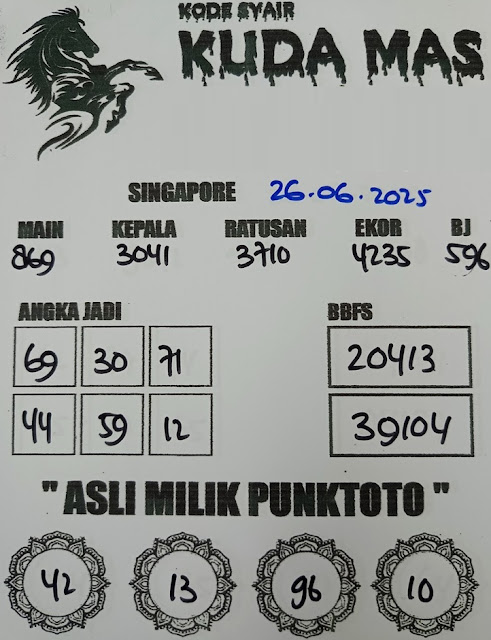 KODE SYAIR
KUDA MAS
SINGAPORE 26.06.2025
MAIN KEPALA RATUSAN EKOR BJ
869 3041 3710 4235 596
ANGKA JADI BBFS
69 30 71 20413
44 59 12 39104
" ASLI MILIK PUNKTOTO "
42 13 96 10